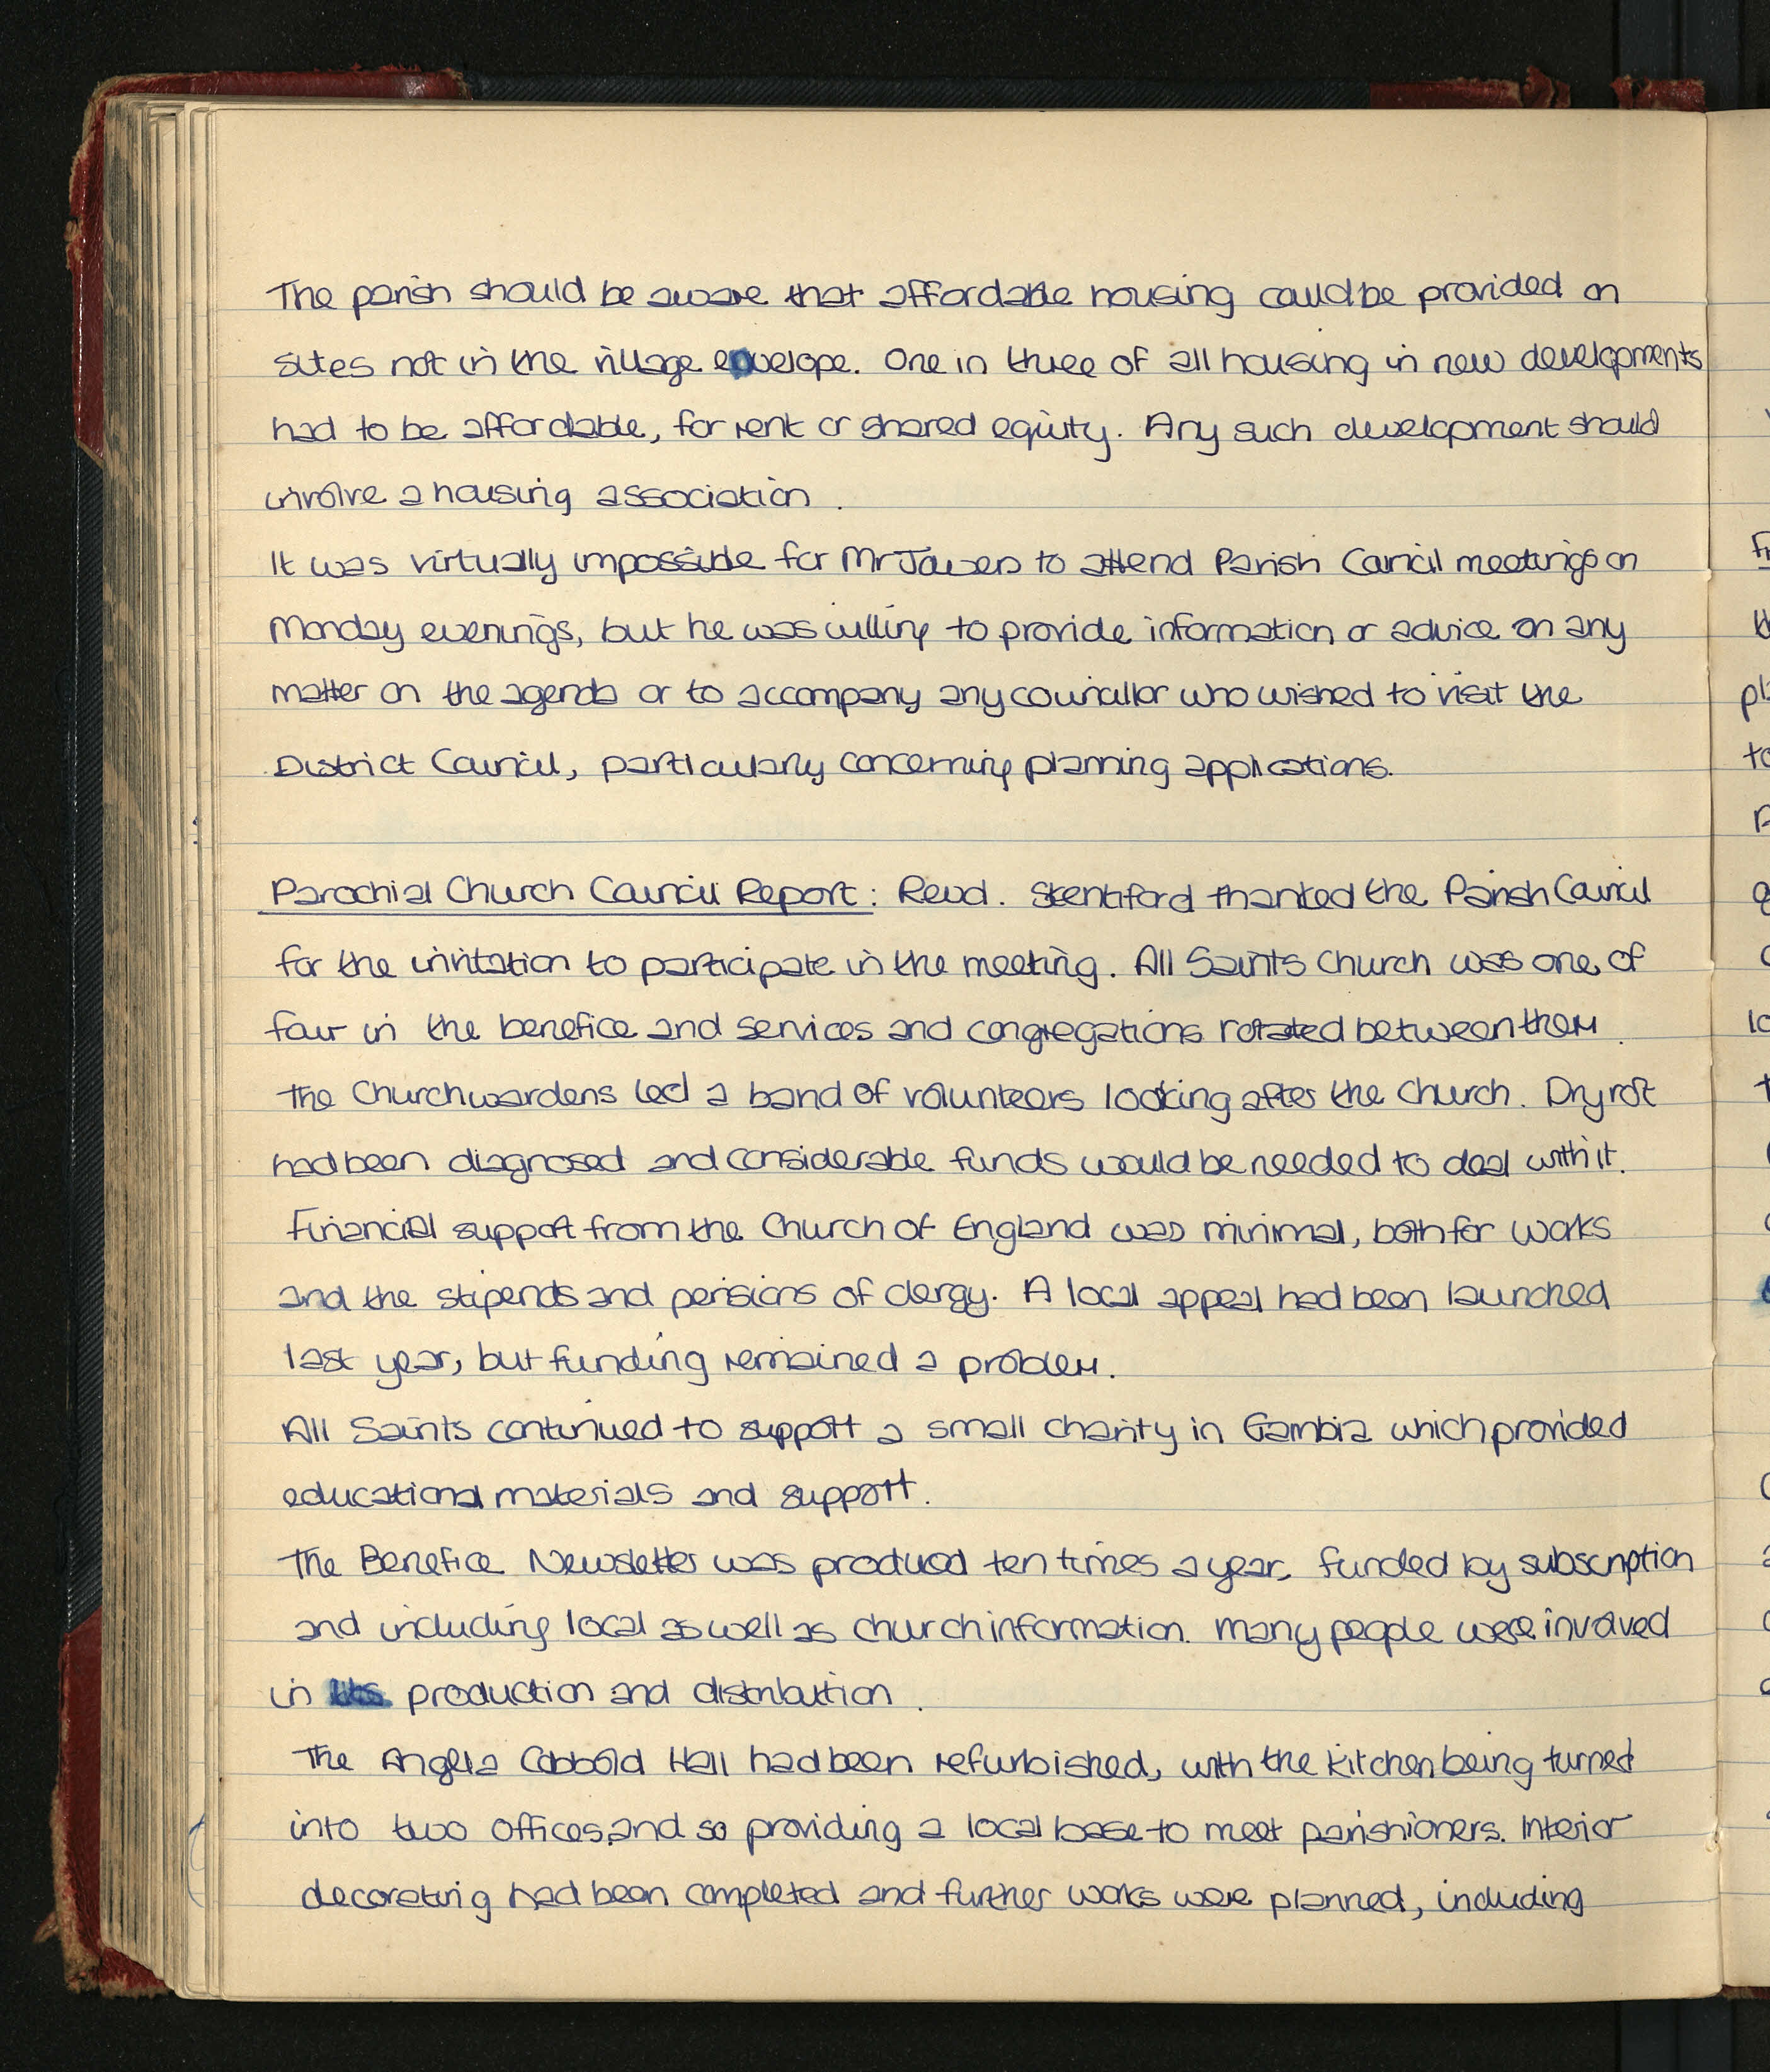 The parish should be aware that affordable housing could be provided on
sites not in the village envelope. One in three of all housing in new developments
had to be affordable, for rent or shared equity. Any such development should
involve a housing association.
It was virtually impossible for Mr to attend Parish Council meetings on
Monday evenings, but he was willing to provide information or advice on any
matter on the agenda or to accompany any councillor who wished to visit the
District Council, particularly concerning planning applications.
Parochial Church Council Report: Revd. Stentiford thanked the Parish Council
for the invitation to participate in the meeting. All Saints Church was one of
four in the benefice and services and congregations rotated between them.
The Churchwardens led a band of volunteers looking after the Church. Dry rot
had been diagnosed and considerable funds would be needed to deal with it.
Financial support from the Church of England was minimal, both for works
and the stipends and pensions of clergy. A local appeal had been launched
last year, but funding remained a problem.
All Saints continued to support a small charity in Gambia which provided
educational materials and support.
The Benefice Newsletter was produced ten times a year, funded by subscription
and including local as well as church information. Many people were involved
in production and distribution.
The Anglia Cobbold Hall had been refurbished, with the kitchen being turned
into two offices, and so providing a local base to meet parishioners. Interior
decorating had been completed and further works were planned, including